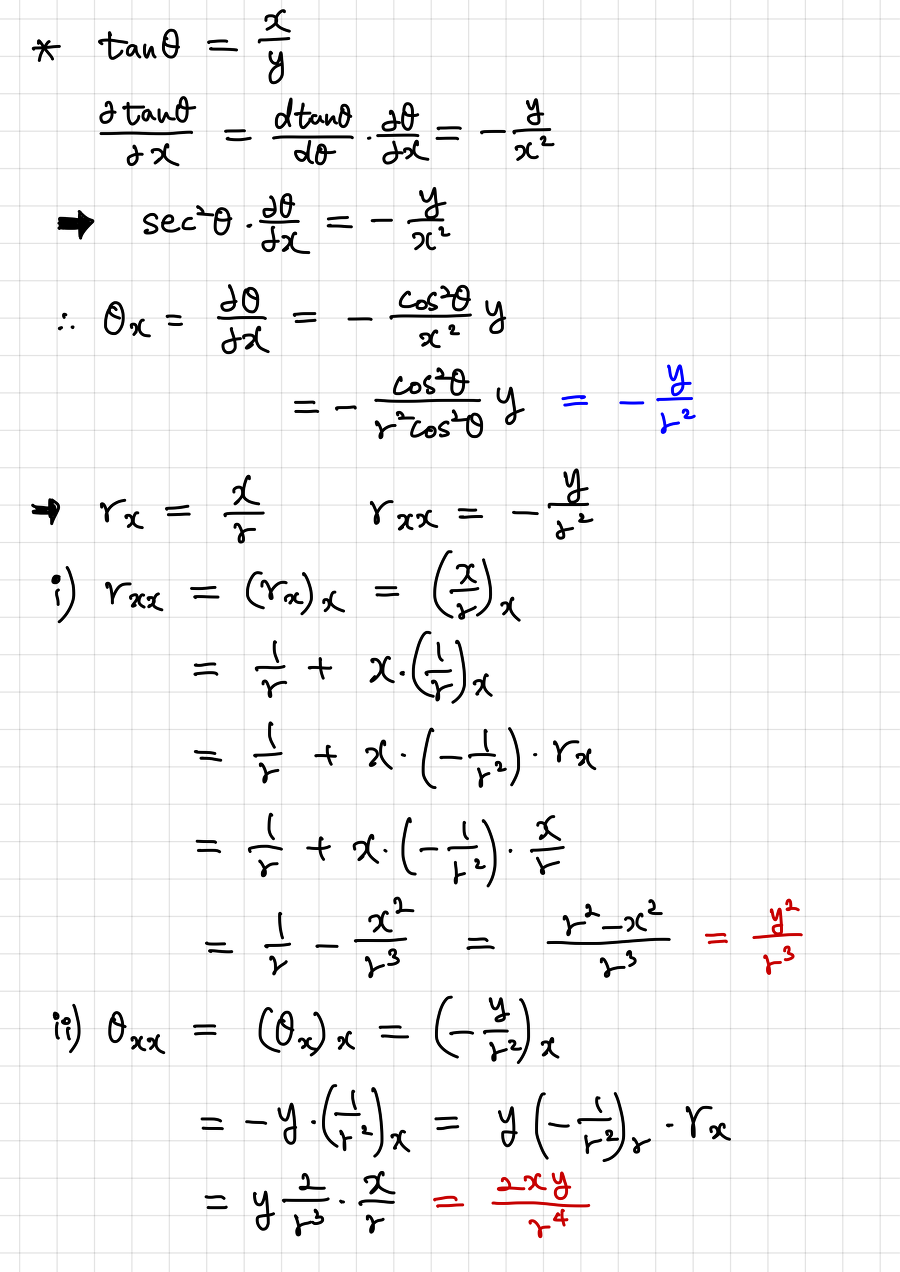 * tanθ = x/y
∂tanθ/∂x = dtanθ/dθ · ∂θ/∂x = - y/x²
➡ sec²θ · ∂θ/∂x = - y/x²
∴ θₓ = ∂θ/∂x = - cos²θ/x² y
= - cos²θ/(r²cos²θ) y = - y/r²
➡ rₓ = x/r rₓₓ = - y/r²
i) rₓₓ = (rₓ)ₓ = (x/r)ₓ
= 1/r + x·(1/r)ₓ
= 1/r + x·(-1/r²)·rₓ
= 1/r + x·(-1/r²)·x/r
= 1/r - x²/r³ = (r²-x²)/r³ = y²/r³
ii) θₓₓ = (θₓ)ₓ = (-y/r²)ₓ
= -y·(1/r²)ₓ = y(-1/r²)ᵣ·rₓ
= y 2/r³ · x/r = 2xy/r⁴